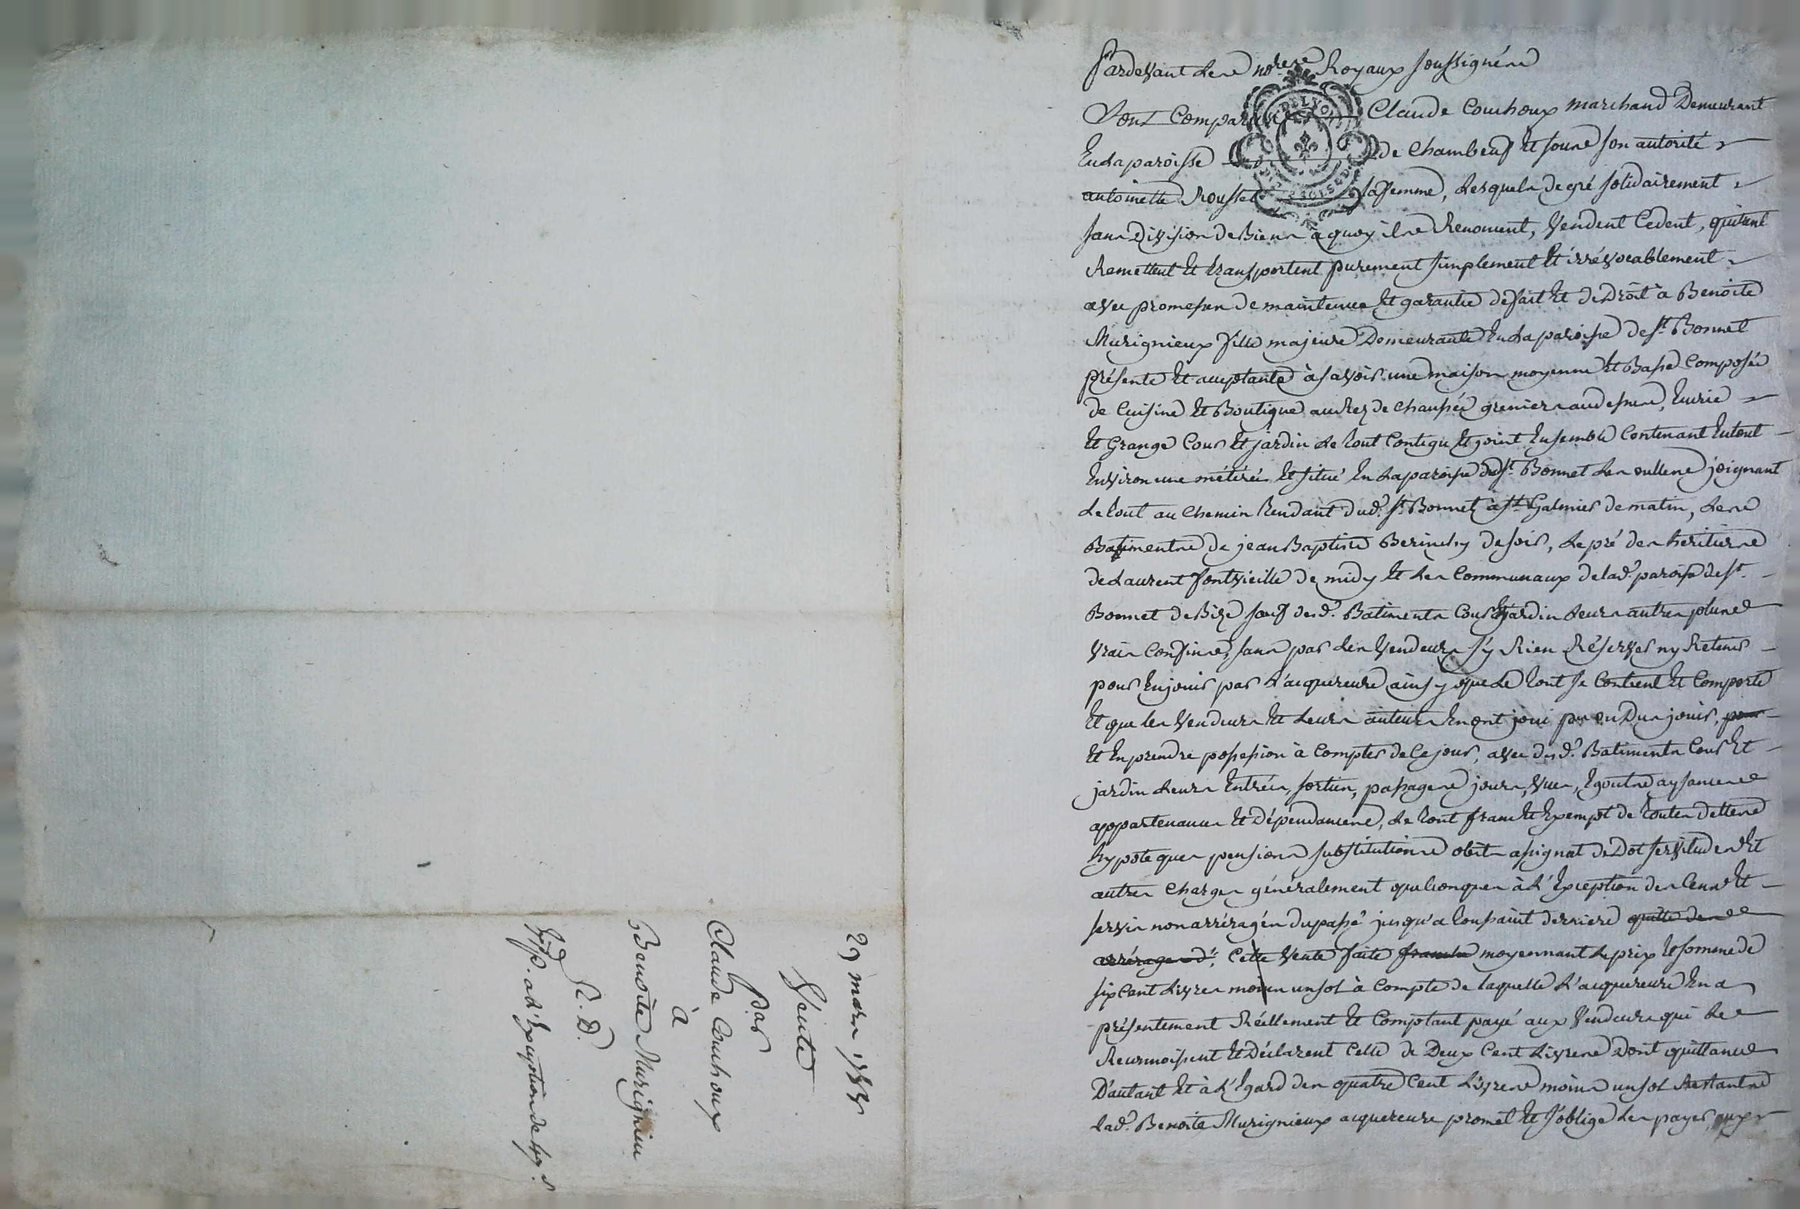 29 mars 1788
Vente
Par
Claude Couchoux
à
Benoite Murignieu
Exp. a l'Exception de hyp.
Pardevant les no.res Royaux soussignés
Sont Comparus Claude Couchoux marchand Demeurant
En la paroisse de Chambeuf Et sous son autorité
antoinette Rousset sa femme, Lesquels de gré solidairement
sans Division de Biens à quoy ils Renoncent, Vendent Cedent, quittent
Remettent Et transportent purement simplement Et irrévocablement
avec promesses de maintenue Et garantie de fait Et de Droit à Benoite
Murignieux fille majeure Demeurante En la paroisse de St. Bonnet
présente Et acceptante à savoir une maison moyenne Et Basse Composée
de Cuisine Et Boutique au Rez de Chaussée greniers au dessus, Ecurie
Et Grange Cour Et jardin Le tout Contigu Et joint Ensemble Contenant En tout
Environ une métérée Et situé En La paroisse de St. Bonnet Les oulles joignant
Le tout au Chemin Tendant dud. St. Bonnet à St. Galmier de matin, Les
Batiments de jean Baptiste de soir, Le pré des héritiers
de Laurent fontvieille de midy Et Les Communaux de lad. paroisse de St.
Bonnet de Bize sauf desd. Batiments Cour Et jardin Leurs autres plus
vrais Confins, sans par Les Vendeurs s'y Rien Réserver ny Retenir
pour En jouir par L'acquereure ainsy que Le tout se Contient Et Comporte
Et que les Vendeurs Et Leurs auteurs En ont joui pu ou Du jouir, pour
Et En prendre possession à Compter de Ce jour, avec desd. Batiments Cour Et
jardin Leurs Entrées, sorties, passages jours, vues, Egouts aysances
appartenances Et Dépendances, Le tout franc Et Exempt de toutes dettes
hypoteques pensions substitutions obits assignat de Dot servitudes Et
autres Charges généralement quelconques à L'Exception des Cens Et
servis non arréragés du passé jusqu'a toussaint derniere quitte des
arrérages d. Cette Vente faite franche moyennant Le prix Et somme de
six Cent Livres moins un sol à Compte de laquelle L'acquereure En a
présentement Réellement Et Comptant payé aux Vendeurs qui Le
Reconnoissent Et Déclarent Celle de Deux Cent Livres Dont quittance
D'autant Et à L'Egard des quatre Cent Livres moins un sol Restants
lad. Benoite Murignieux acquereure promet Et s'oblige Les payer aux